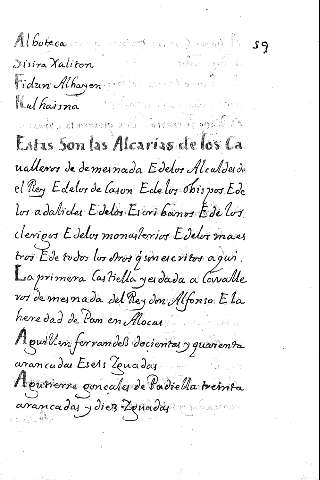 Alboteca
59
Sisira Xaliton
Fidun Alhayen
Kulhaisna
Estas Son las Alcarias de los Ca
ualleros de de mesnada E delos Alcaldes de
el Rey E delos de Cason E delos obispos E de
los adalides E delos Escribanos E de los
clerigos E delos monasterios E delos maes
tros E de todos los otros q̃ son escritos aqui.
La primera Castiella yes dada a Cavalle
ros de mesnada del Rey don Alfonso E la
heredad de Pan en Alocas
A guillen ferrandes docientas y quarenta
arancadas E seis Zguadas
A gutierre gonçales de Padiella treinta
arancadas y dies Zguadas